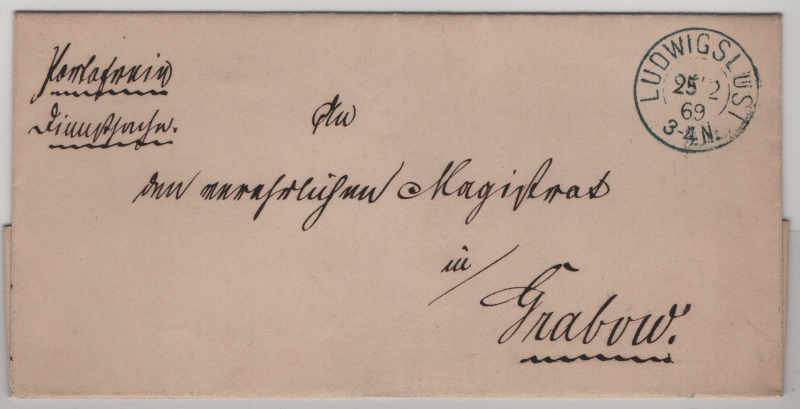 Portofreie
Dienstsache.
LUDWIGSLUST
25 2
69
3-4 N.
An
den verehrlichen Magistrat
in
Grabow.